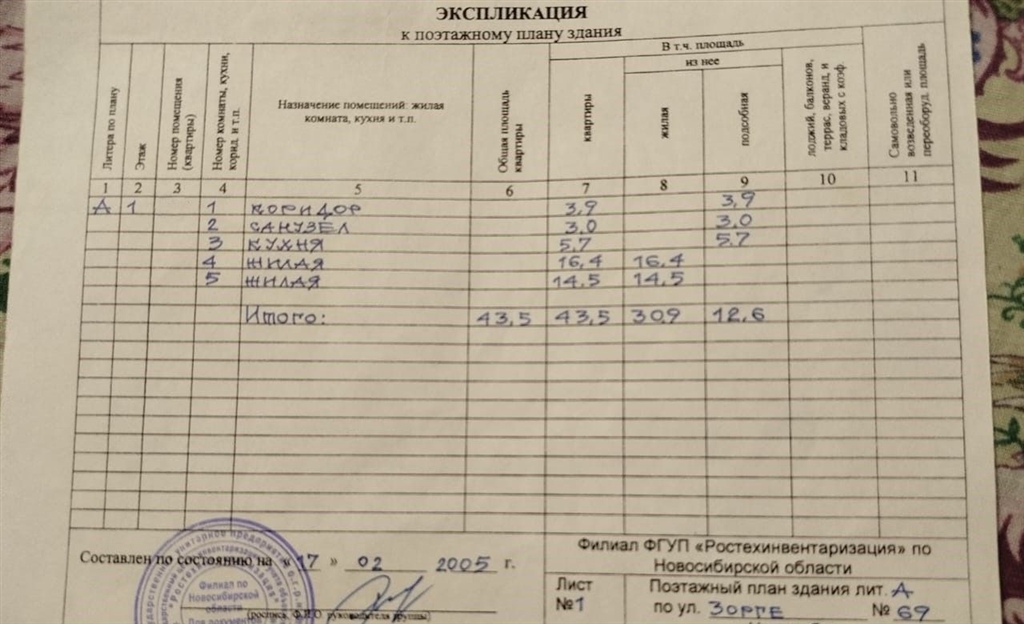 ЭКСПЛИКАЦИЯ
к поэтажному плану здания
Литера по плану
Этаж
Номер помещения (квартиры)
Номер комнаты, кухни, корид. и т.п.
Назначение помещений: жилая комната, кухня и т.п.
Общая площадь квартиры
В т.ч. площадь
квартиры
из нее
жилая
подсобная
лоджий, балконов, террас, веранд, и кладовых с коэф.
Самовольно возведенная или переоборуд. площадь
1 2 3 4 5 6 7 8 9 10 11
А 1 1 КОРИДОР 3,9 3,9
2 САНУЗЕЛ 3.0 3.0
3 КУХНЯ 5,7 5.7
4 ЖИЛАЯ 16,4 16,4
5 ЖИЛАЯ 14,5 14,5
Итого: 43,5 43,5 30,9 12,6
Составлен по состоянию на «17» 02 2005 г.
(роспись, Ф.И.О. руководителя группы)
Филиал по
Новосибирской
области
Филиал ФГУП «Ростехинвентаризация» по
Новосибирской области
Лист
№1
Поэтажный план здания лит. А
по ул. Зорге № 69